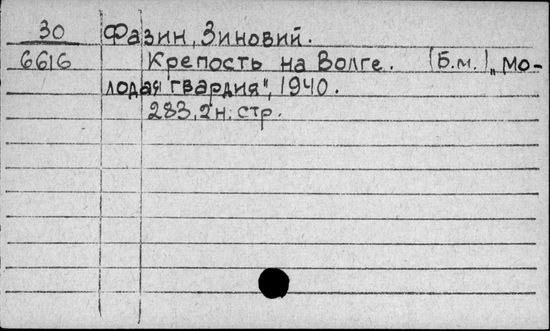 30 Фазин, Зиновий.
6616 Крепость на Волге. (Б.м.) „Мо-
лодая гвардия", 1940.
283, 2 н. стр.